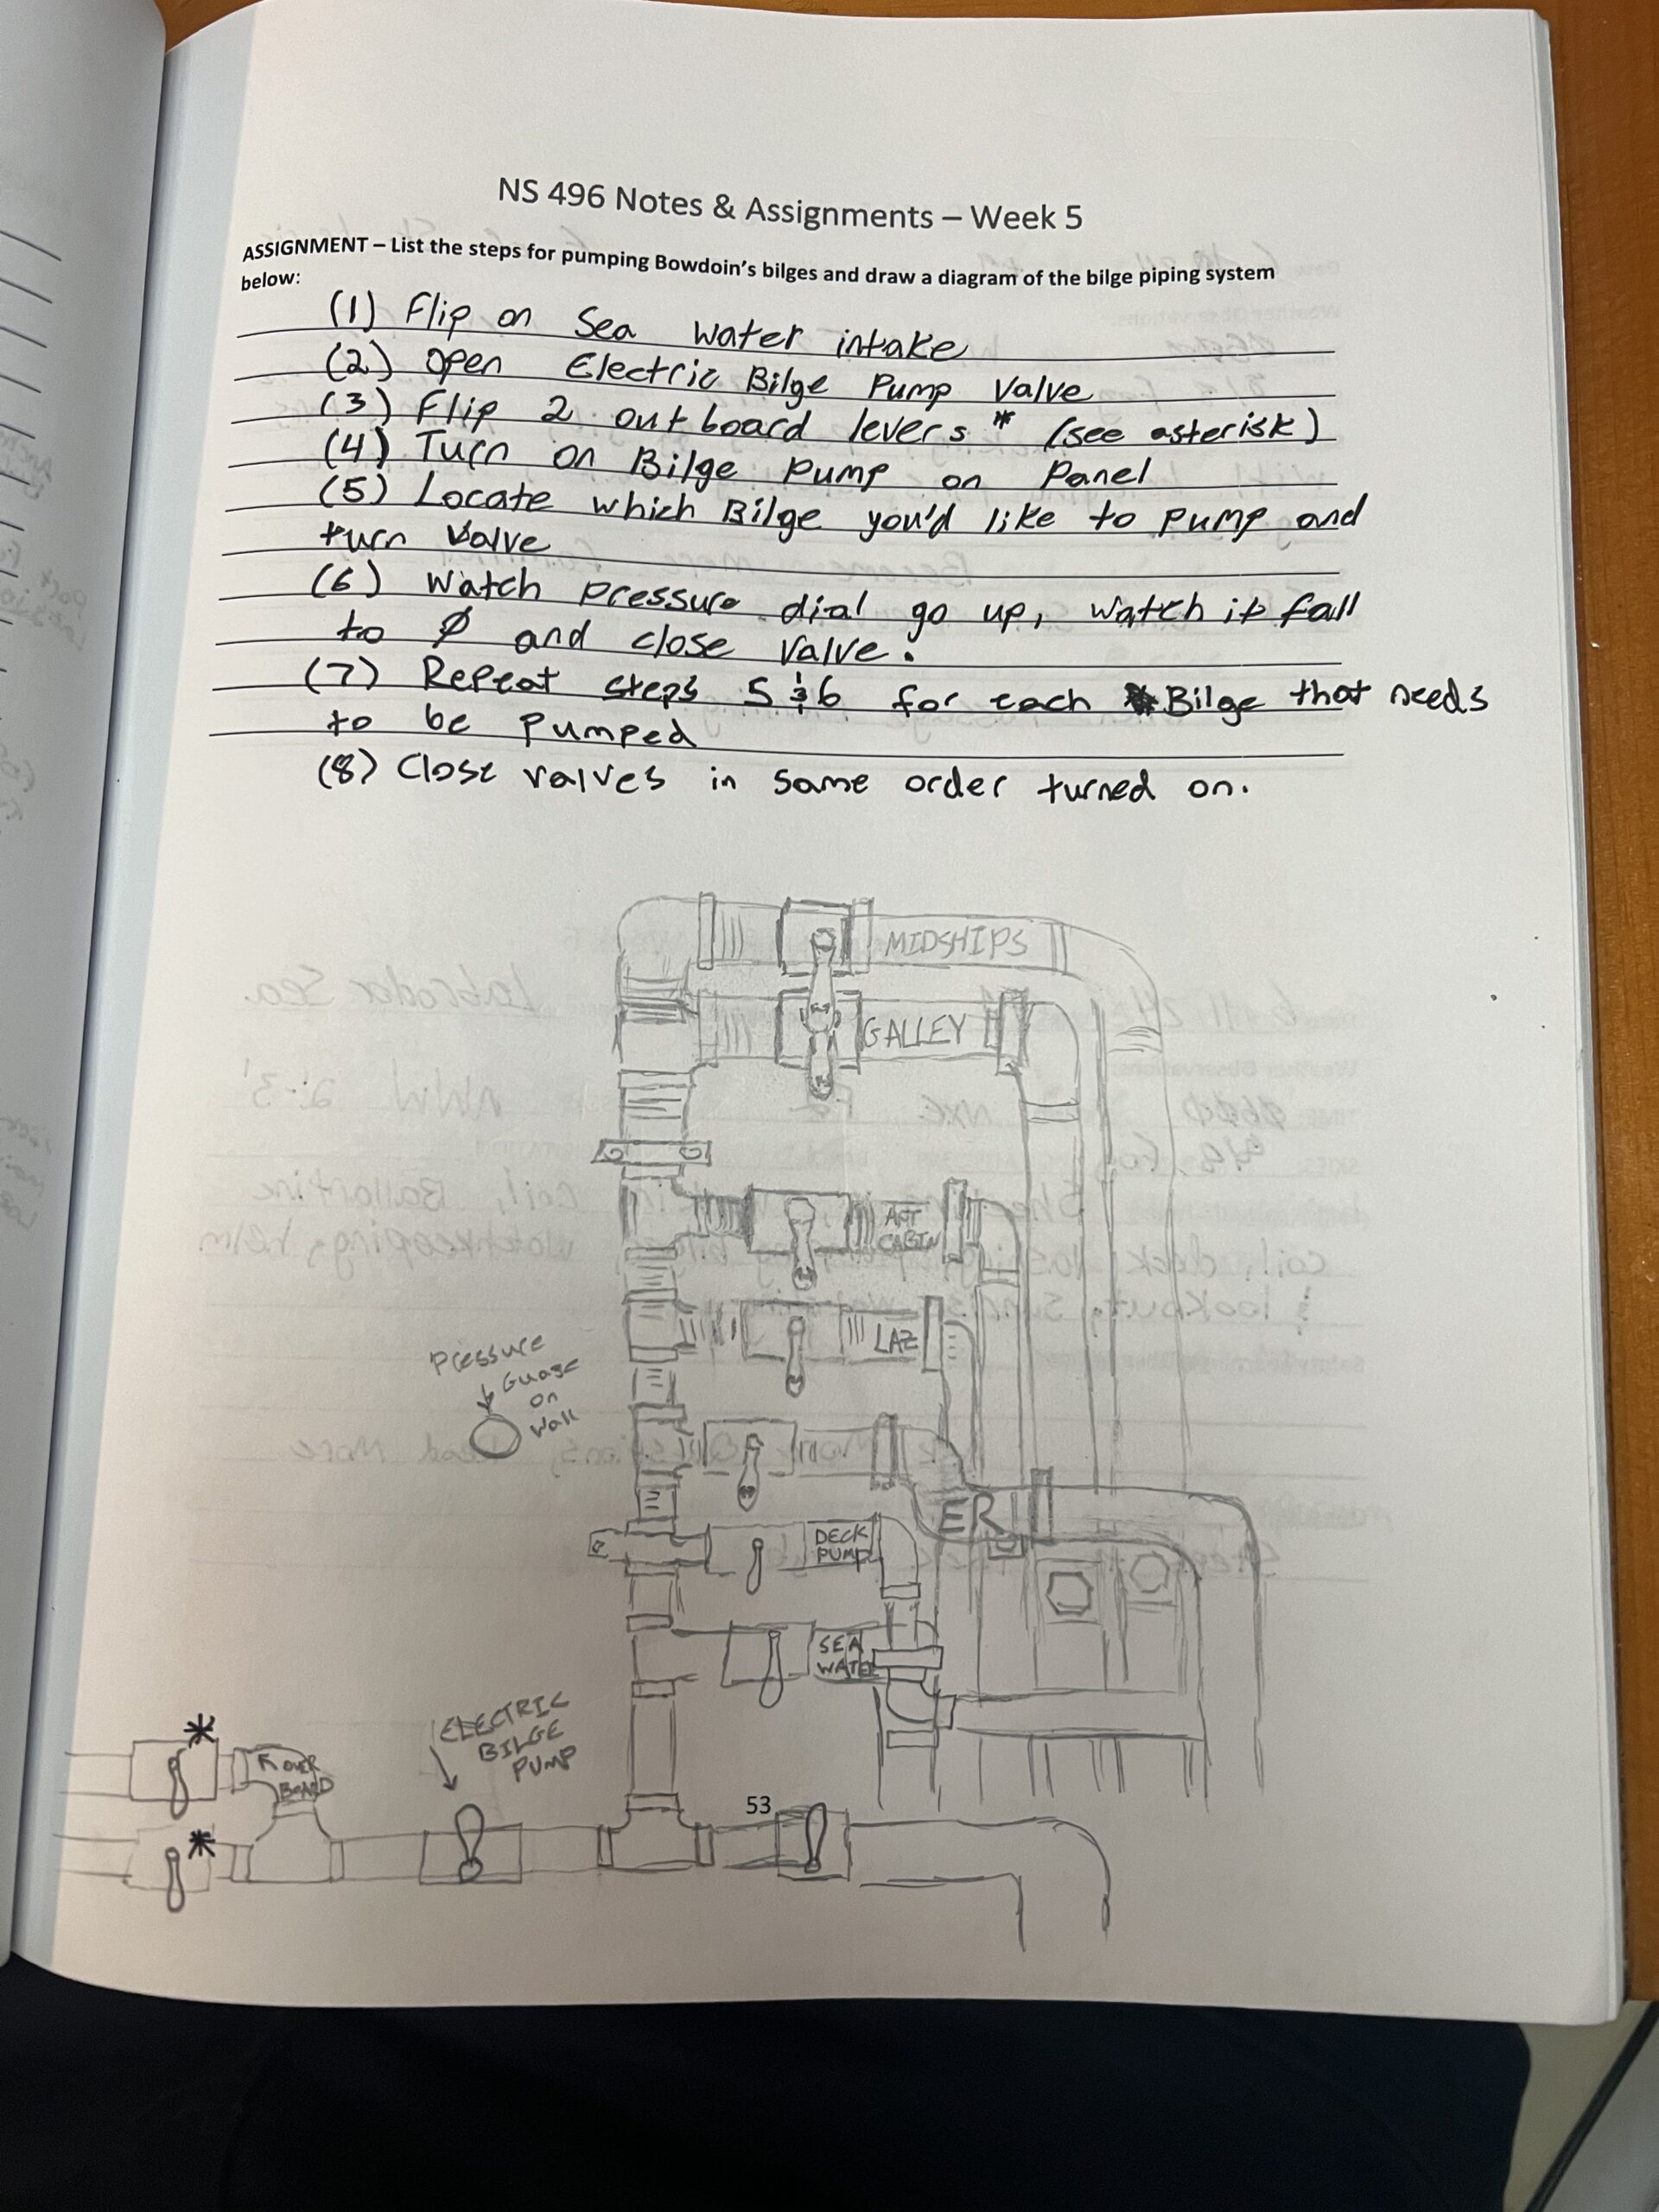 NS 496 Notes & Assignments – Week 5
ASSIGNMENT – List the steps for pumping Bowdoin's bilges and draw a diagram of the bilge piping system
below:
(1) Flip on Sea water intake
(2) Open Electric Bilge Pump Valve
(3) Flip 2 outboard levers * (see asterisk)
(4) Turn on Bilge Pump on Panel
(5) Locate which Bilge you'd like to pump and
turn valve
(6) Watch pressure dial go up, watch it fall
to Ø and close valve.
(7) Repeat steps 5 & 6 for each Bilge that needs
to be pumped
(8) Close valves in same order turned on.
MIDSHIPS
GALLEY
AFT
CABIN
LAZ
Pressure
Guage
on
Wall
ER
DECK
PUMP
SEA
WATER
ELECTRIC
BILGE
PUMP
*
OVER
BOARD
*
53